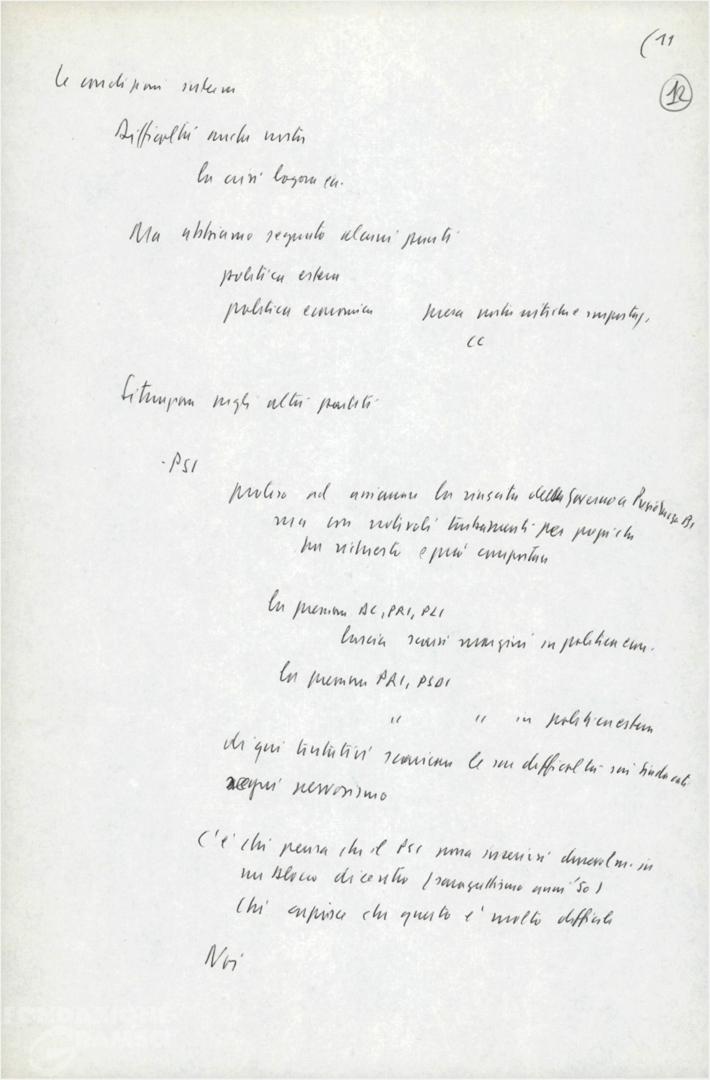 (11
12
Le condizioni esterne
Difficoltà anche nostre
la crisi logora
Ma abbiamo segnato alcuni punti
politica estera
politica economica nostre critiche e
CC
Situazione negli altri partiti
- PSI
proteso ad assicurare la riuscita della Governo a Presidenza
ma con notevoli turbamenti per
ha richiesto e può comportare
la pressione DC, PRI, PLI
lascia scarsi margini in politica econ.
la pressione PRI, PSDI
" " in politica estera
di qui tentativi scaricare le sue difficoltà sui sindacati
segni nervosismo
C'è chi pensa che il PSI possa inserirsi durevolm. in
un Blocco di centro (saragattismo anni '50)
Chi capisce che questo è molto difficile
Noi
FONDAZIONE
GRAMSCI